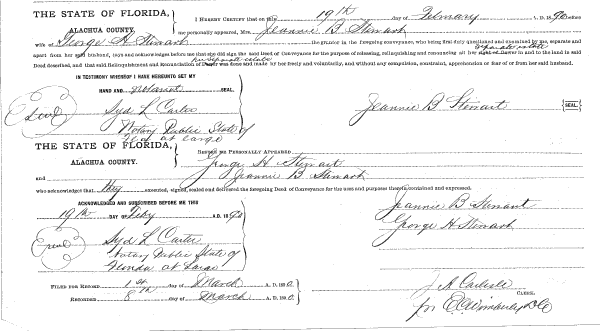 THE STATE OF FLORIDA,
ALACHUA COUNTY.
I HEREBY CERTIFY that on this 19th day of February A. D. 1890 before
me personally appeared, Mrs. Jeannie B Stewart
wife of George H Stewart the grantor in the foregoing conveyance, who being first duly questioned and examined by me, separate and
apart from her said husband, says and acknowledges before me that she did sign the said Deed of Conveyance for the purpose of releasing, relinquishing and renouncing all her separate estate right of dower in and to the land in said
Deed described, and that said Relinquishment and Renunciation of her separate estate Dower was done and made by her freely and voluntarily, and without any compulsion, constraint, apprehension or fear of or from her said husband.
IN TESTIMONY WHEREOF I HAVE HEREUNTO SET MY
HAND AND Notarial SEAL.
Syd L Carter
Notary Public State of
at large
Jeannie B Stewart (SEAL)
THE STATE OF FLORIDA,
ALACHUA COUNTY.
BEFORE ME PERSONALLY APPEARED George H Stewart
and Jeannie B Stewart
who acknowledged that they executed, signed, sealed and delivered the foregoing Deed of Conveyance for the uses and purposes therein contained and expressed.
ACKNOWLEDGED AND SUBSCRIBED BEFORE ME THIS
19th DAY OF Feby A. D. 1890
Syd L Carter
Notary Public State of
Florida at Large
Jeannie B Stewart
George H Stewart
FILED FOR RECORD 1st day of March A. D. 1890.
RECORDED 8 day of March A. D. 1890.
J A Carlisle
CLERK.
pr E C Wimberly D C